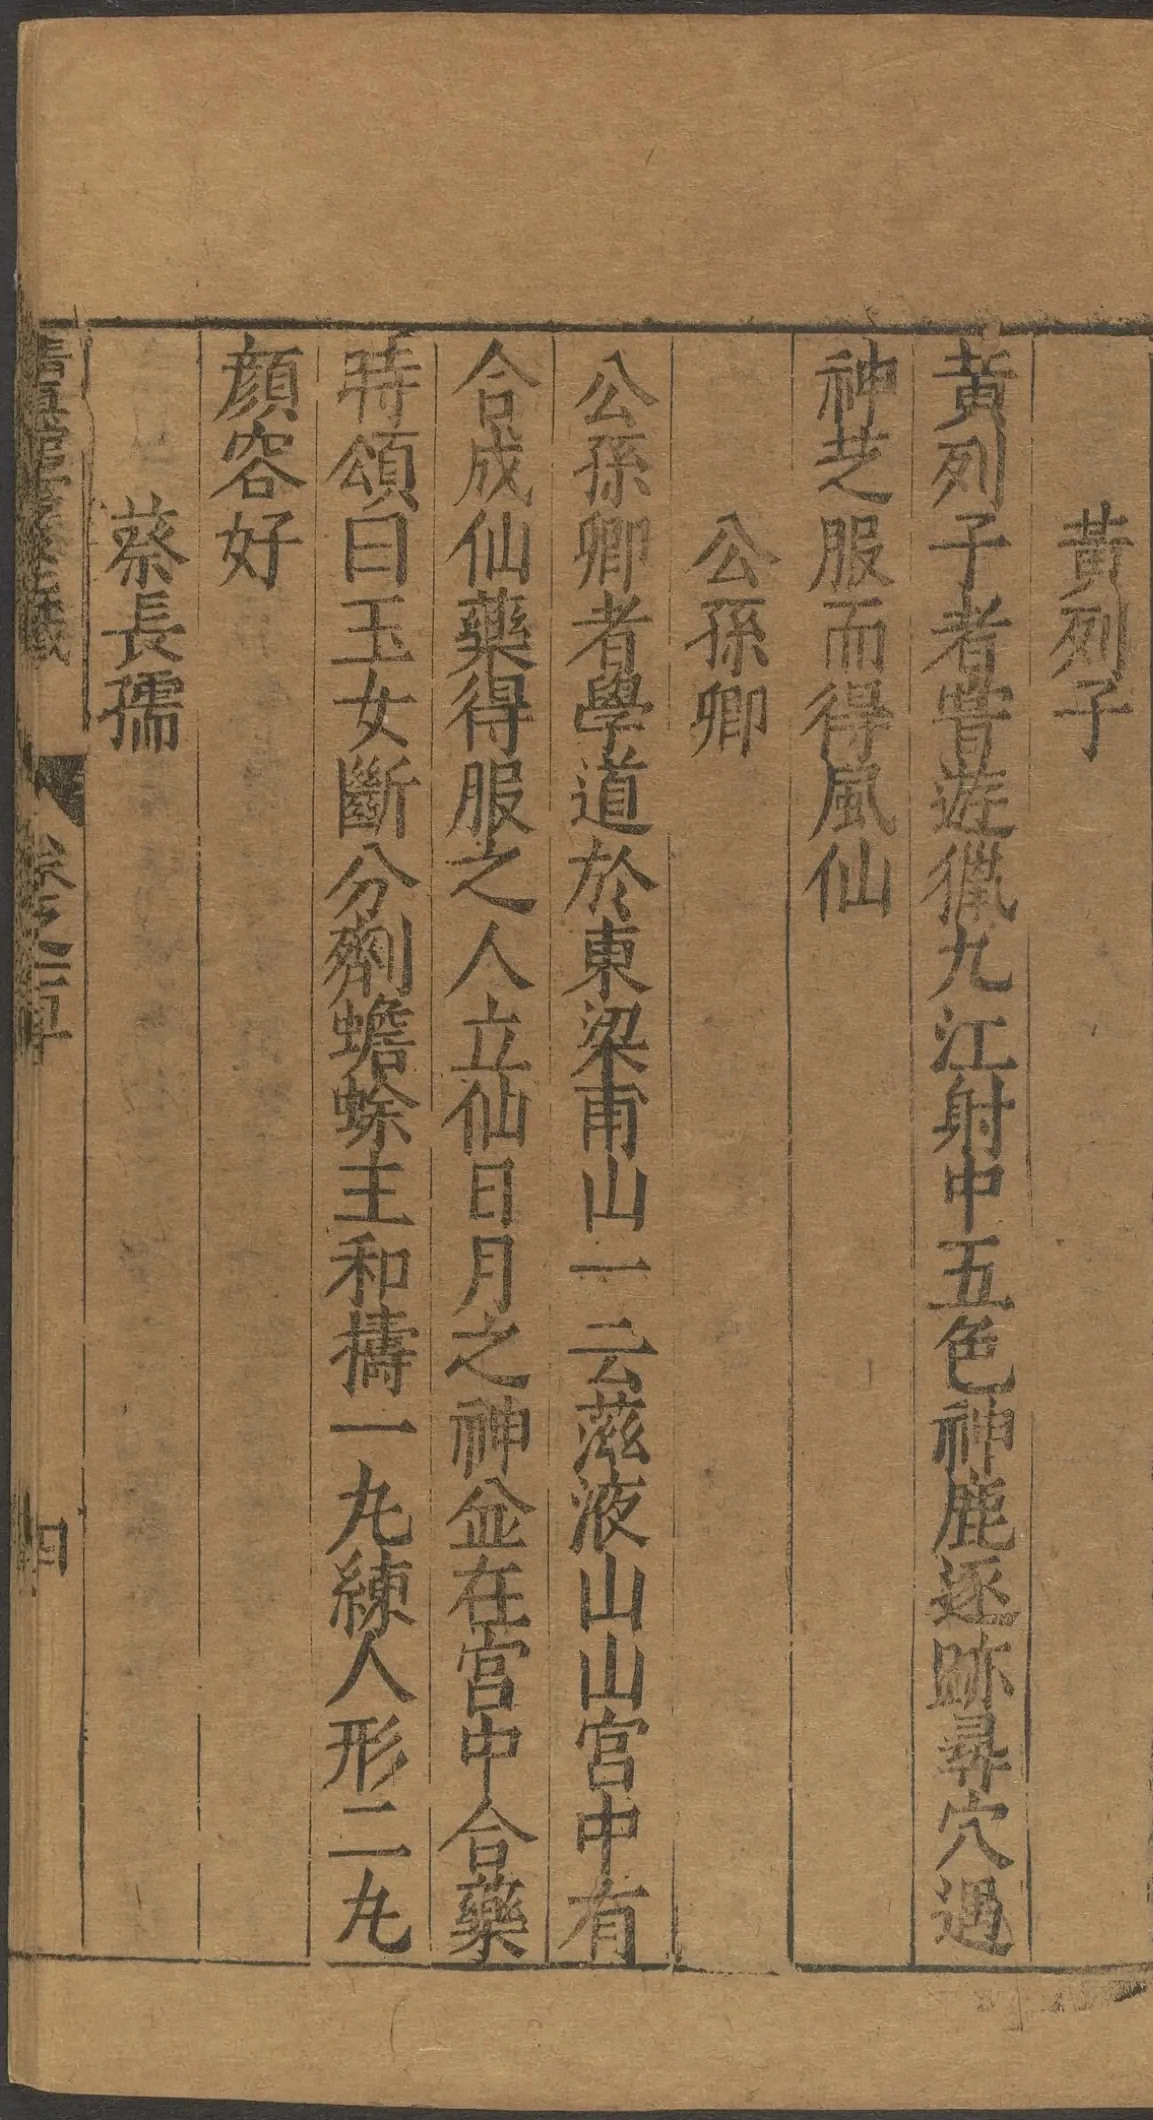 黃列子
黃列子者甞遊獵九江射中五色神鹿逐跡尋穴遇
神芝服而得風仙
公孫卿
公孫卿者學道於東梁甫山一云滋液山山宮中有
合成仙藥得服之人立仙日月之神並在宮中合藥
時頌曰玉女斷分劑蟾蜍主和擣一丸練人形二丸
顏容好
蔡長孺
卷之二 四